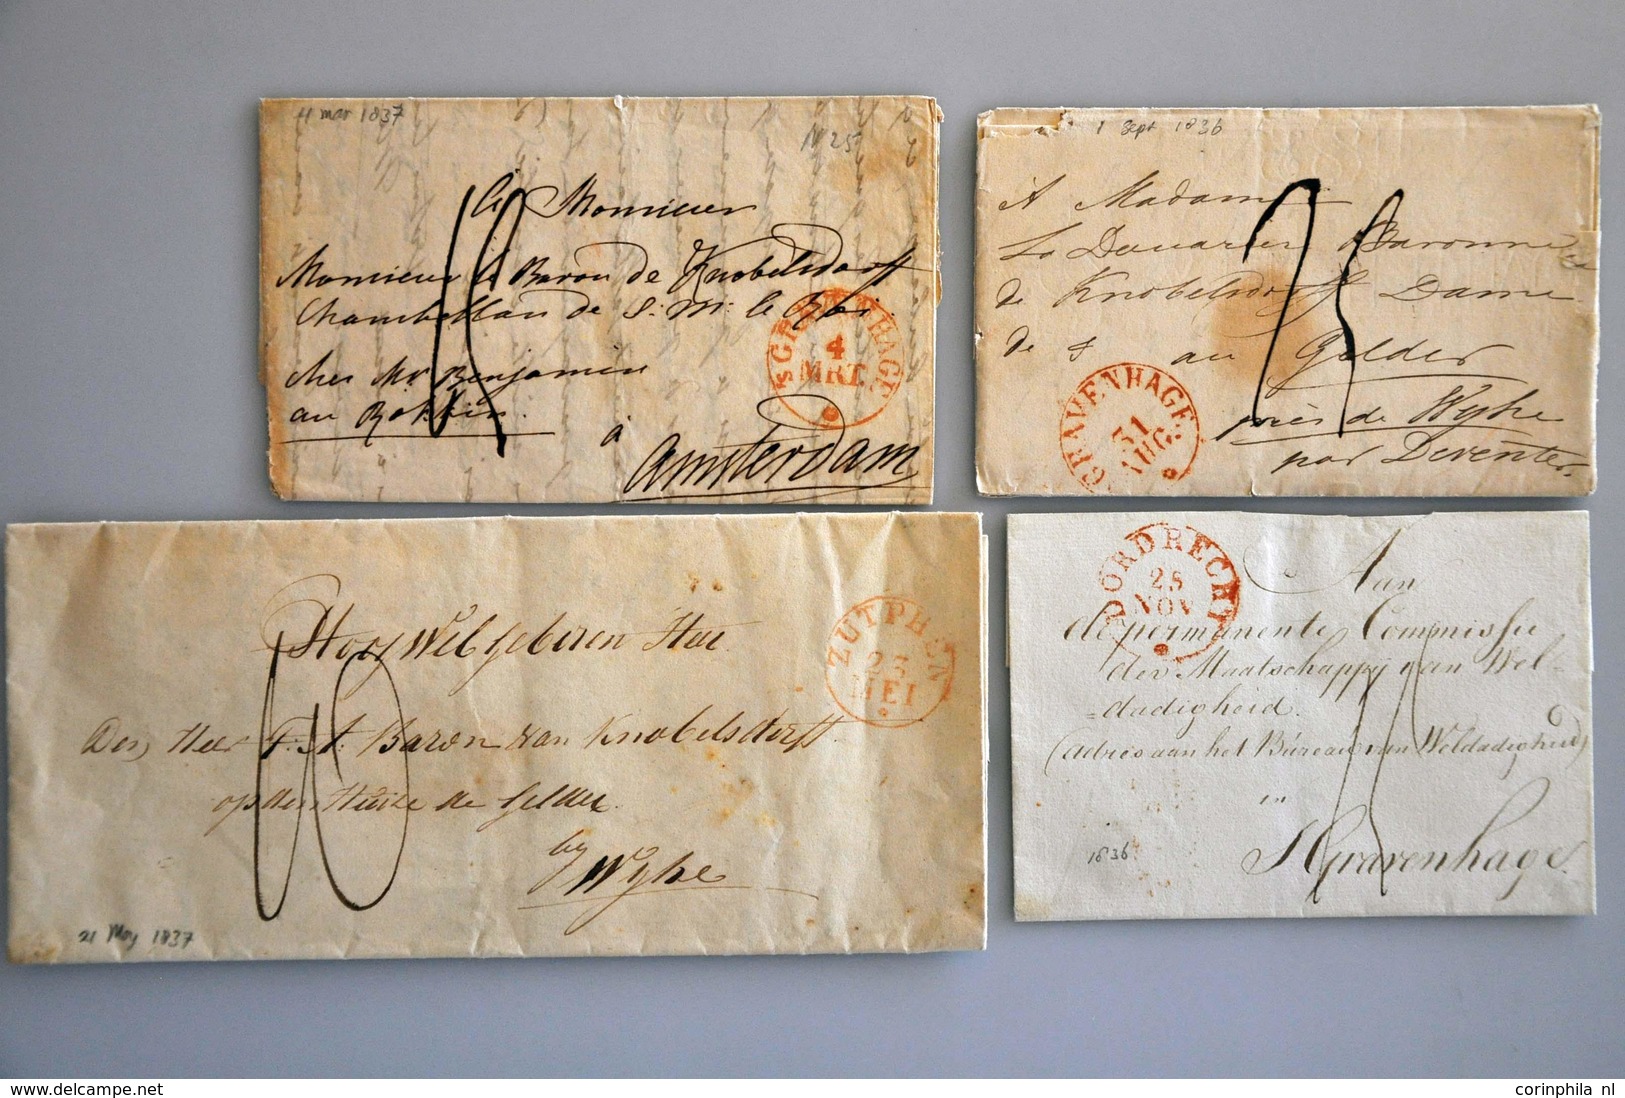 4 mar 1837
N 25
à Monsieur
Monsieur le Baron de Knobelsdorff
Chambellan de S: M: le Roi.
chez Mr Benjamin
au Rokkin.
à
Amsterdam
'SGRAVENHAGE
4
MRT.
1 Sept 1836
A Madame
La Douarière Baronne
de Knobelsdorff Dame
de & au Gelder
près de Wyhe
par Deventer.
GRAVENHAGE
31
AUG.
Hoog Wel Geboren Heer
Den Heer F. A. Baron van Knobelsdorff
op den Huize de Gelder
by Wyhe
ZUTPHEN
23
MEI
21 May 1837
DORDRECHT
28
NOV
Aan
de permanente Commissie
der Maatschappij van Wel=
=dadigheid.
(adres aan het Búreau van Weldadigheid)
in
SGravenhage.
1836
www.delcampe.net
corinphila nl